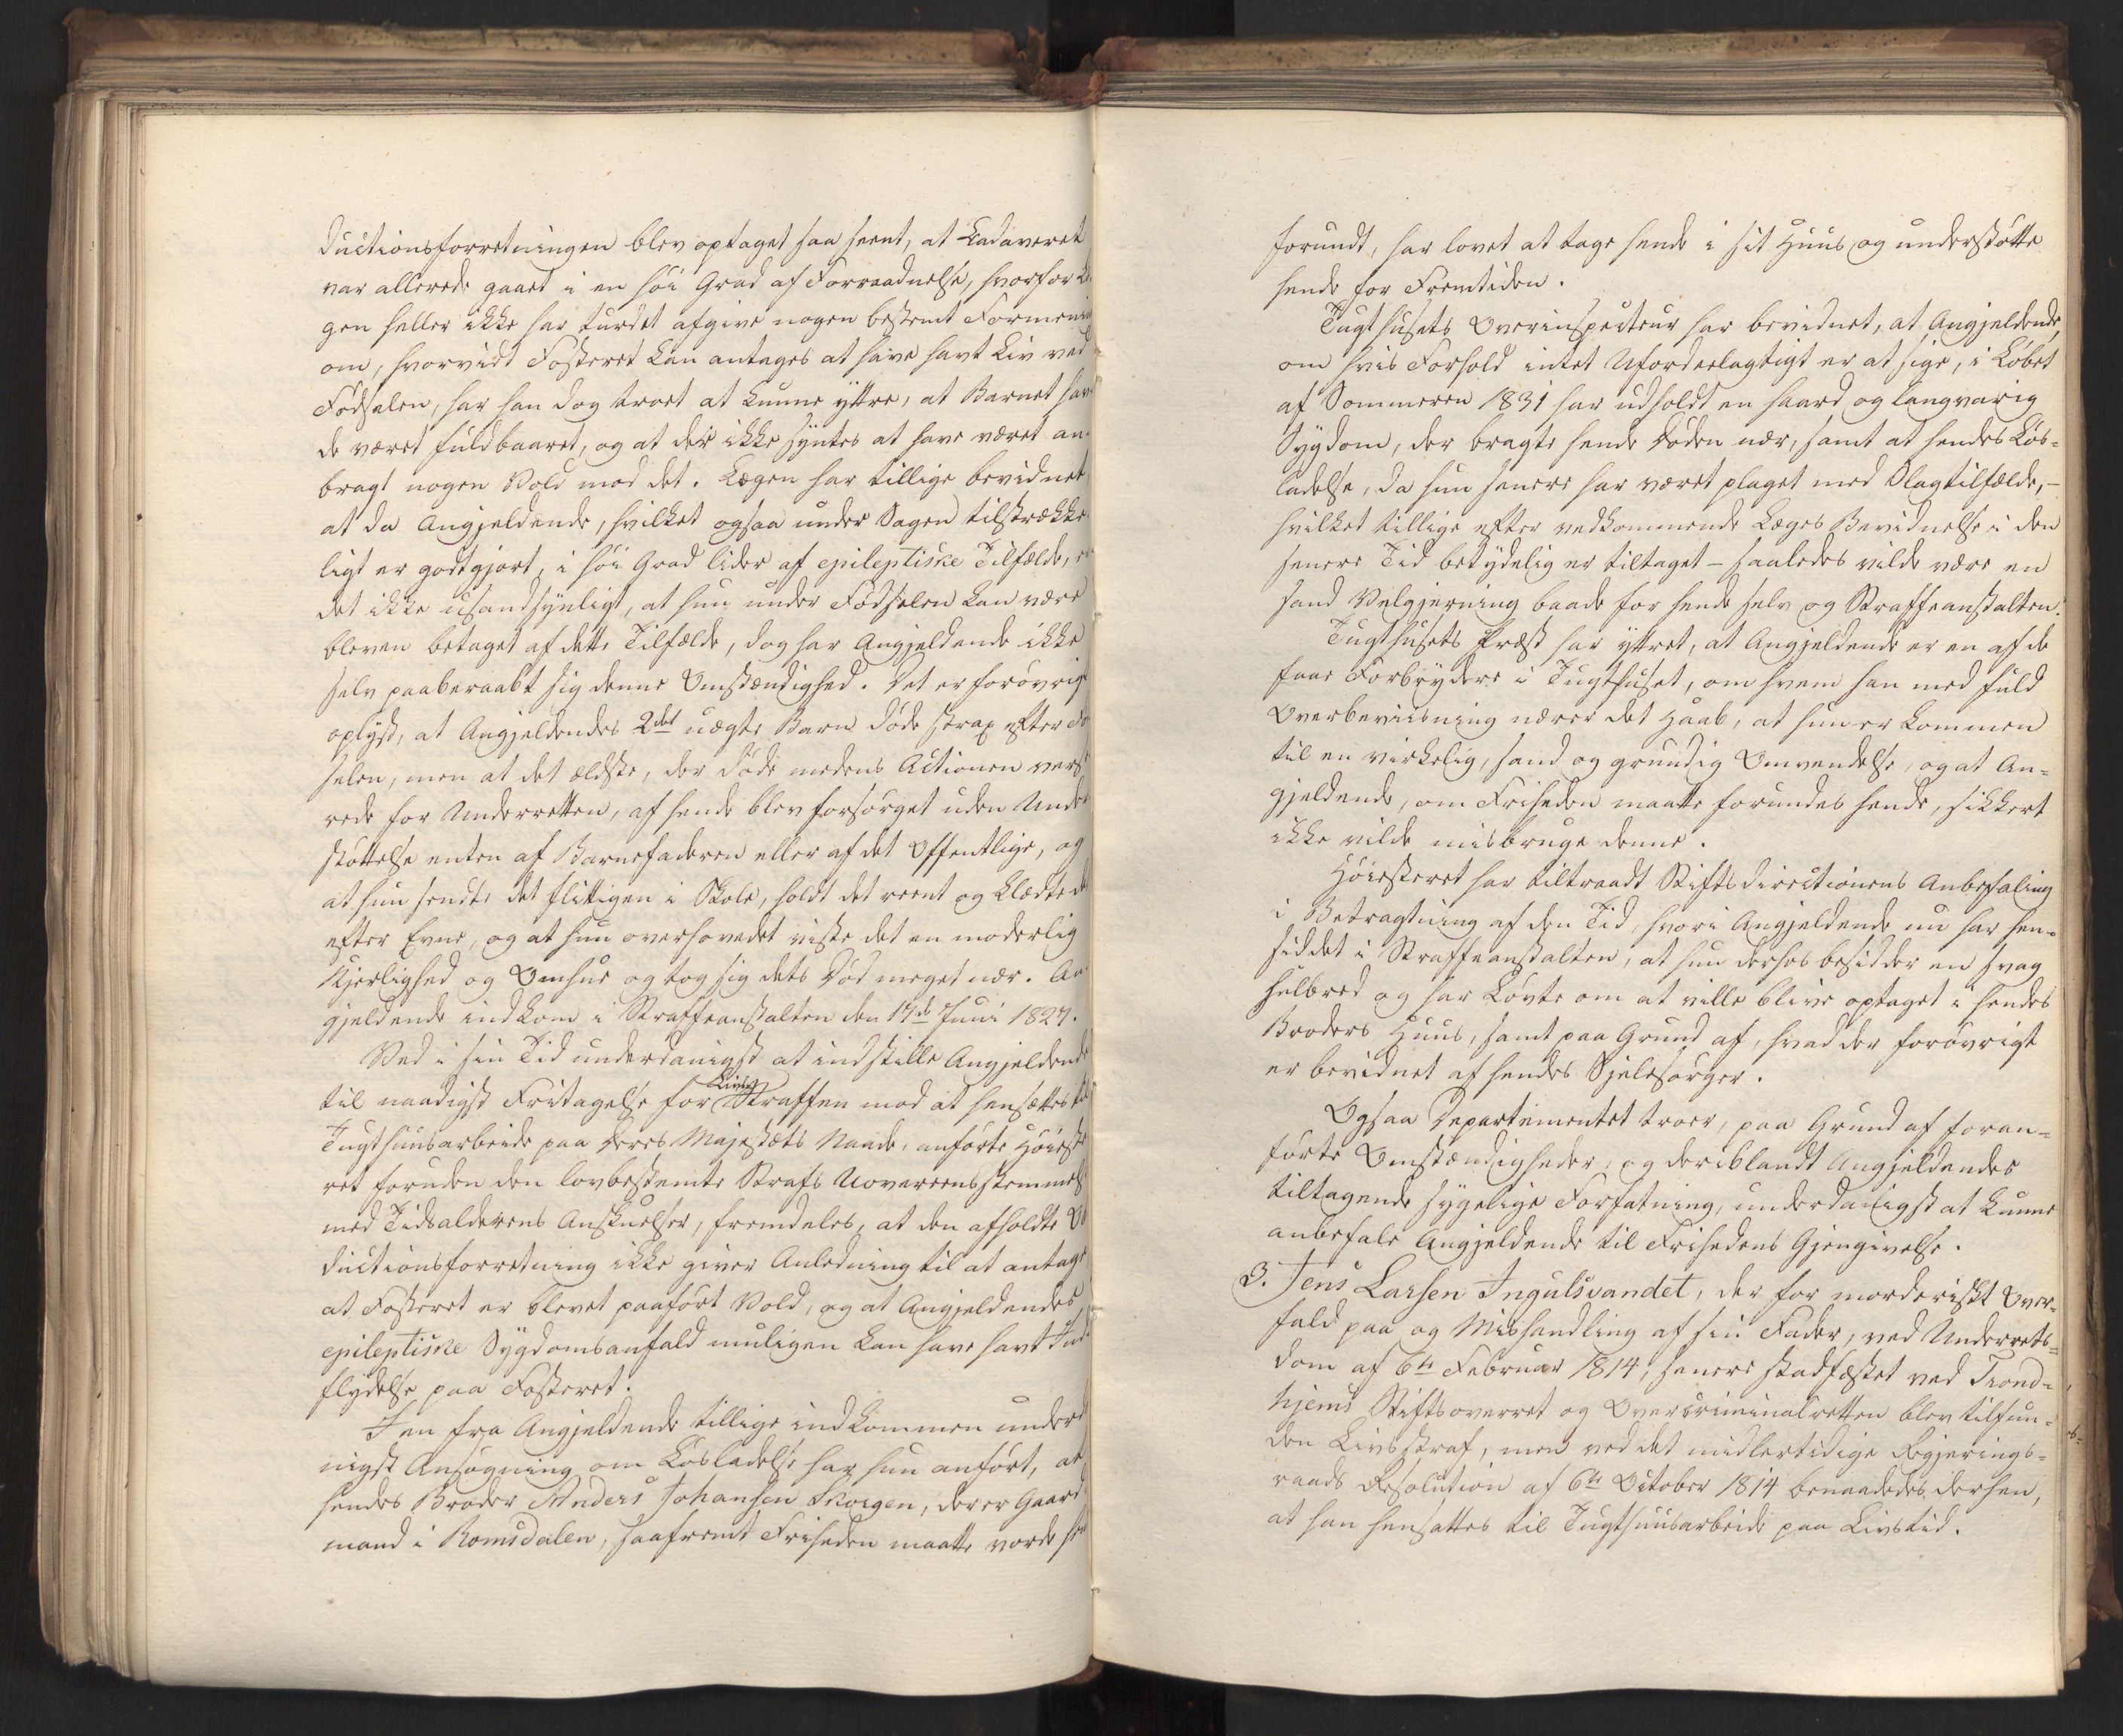 ductionsforretningen blev optaget saa seent, at Cadaveret
var allerede gaaet i en høi Grad af Forraadnelse, hvorfor Læ-
gen heller ikke har turdet afgive nogen bestemt Formening
om, hvorvidt Fosteret kan antages at have havt Liv ved
Fødselen, har han dog troet at kunne yttre, at Barnet hav-
de været fuldbaaret, og at der ikke syntes at have været an-
bragt nogen Vold mod det. Lægen har tillige bevidnet
at da Angjeldende, hvilket ogsaa under Sagen tilstrække-
ligt er godtgjort, i høi Grad lider af epileptiske Tilfælde, er
det ikke usandsynligt, at hun under Fødselen kan være
bleven betaget af dette Tilfælde, dog har Angjeldende ikke
selv paaberaabt sig denne Omstændighed. Det er forøvrigt
oplyst, at Angjeldendes 2det uægte Barn døde strax efter Fød-
selen, men at det ældste, der døde medens Actionen vers-
rede for Underretten, af hende blev forsørget uden Under-
støttelse enten af Barnefaderen eller af det Offentlige, og
at hun sendte det flittigen i Skole, holdt det reent og klædte det
efter Evne, og at hun overhovedet viste det en moderlig
Kjerlighed og Omhue og tog sig dets Død meget nær. An-
gjeldende indkom i Straffeanstalten den 17de Juni 1827.
Ved i sin Tid underdanigst at indstille Angjeldende
til naadigst Fritagelse for Livsstraffen mod at hensættes til
Tugthuusarbeide paa Deres Majestæts Naade, anførte Høieste-
ret foruden den lovbestemte Strafs Uovereensstemmelse
med Tidsalderens Anskuelser, fremdeles, at den afholdte Ob-
ductionsforretning ikke giver Anledning til at antage
at Fosteret er blevet paaført Vold, og at Angjeldendes
epileptiske Sygdomsanfald muligen kan have havt Ind-
flydelse paa Fosteret.
I en fra Angjeldende tillige indkommen underda-
nigst Ansøgning om Løsladelse har hun anført, at
hendes Broder Anders Johansen Skorgen, der er Gaard-
mand i Romsdalen, saafremt Friheden maatte vorde hen-
forundt, har lovet at tage hende i sit Huus og understøtte
hende for Fremtiden.
Tugthusets Overinspecteur har bevidnet, at Angjeldende,
om hvis Forhold intet Ufordeelagtigt er at sige, i Løbet
af Sommeren 1831 har udholdt en haard og langvarig
Sygdom, der bragte hende Døden nær, samt at hendes Løs-
ladelse, da hun senere har været plaget med Slagtilfælde, –
hvilket tillige efter vedkommende Læges Bevidnelse i den
senere Tid betydelig er tiltaget – saaledes vilde være en
sand Velgjerning baade for hende selv og Straffeanstalten.
Tugthusets Præst har yttret, at Angjeldende er en af de
faae Forbrydere i Tugthuset, om hvem han med fuld
Overbeviisning nærer det Haab, at hun er kommen
til en virkelig, sand og grundig Omvendelse, og at An-
gjeldende, om Friheden maatte forundes hende, sikkert
ikke vilde misbruge denne.
Høiesteret har tiltraadt Stiftsdirectionens Anbefaling
i Betragtning af den Tid, hvori Angjeldende nu har hen-
siddet i Straffeanstalten, at hun derhos besidder en svag
Helbred og har Løvte om at ville blive optaget i hendes
Broders Huus, samt paa Grund af, hvad der forøvrigt
er bevidnet af hendes Sjelesørger.
Ogsaa Departementet troer, paa Grund af foran-
førte Omstændigheder, og deriblandt Angjeldendes
tiltagende sygelige Forfatning, underdanigst at kunne
anbefale Angjeldende til Frihedens Gjengivelse.
3. Jens Larsen Ingulsvandet, der for morderiskt Over-
fald paa og Mishandling af sin Fader, ved Underrets-
dom af 6te Februar 1814, senere stadfæstet ved Trond-
hjems Stiftsoverret og Overcriminalretten blev tilfun-
den Livsstraf, men ved det midlertidige Regjerings-
raads Resolution af 6te October 1814 benaadedes derhen,
at han hensattes til Tugthuusarbeide paa Livstid.